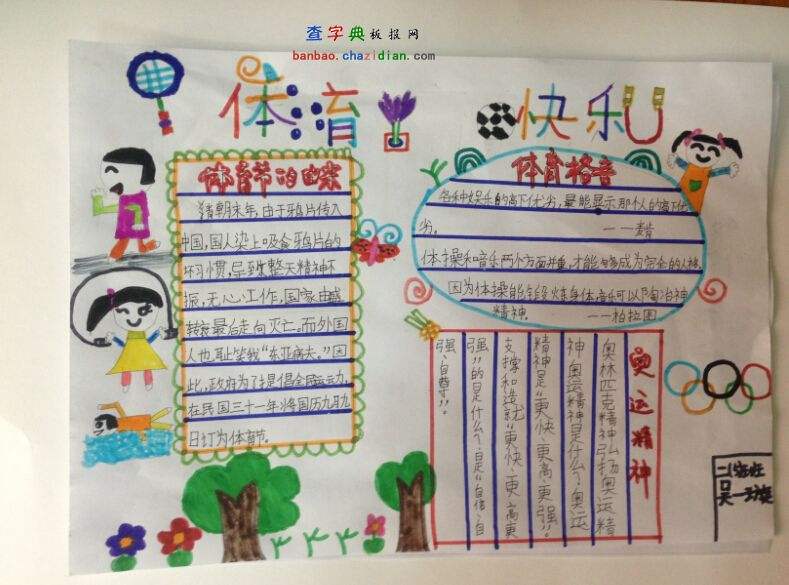 查字典板报网
banbao.chazidian.com
体育
快乐
体育节的由来
清朝末年,由于鸦片传入
中国,国人染上吸食鸦片的
坏习惯,导致整天精神不
振,无心工作,国家由盛
转衰最后走向灭亡。而外国
人也耻笑我"东亚病夫。"因
此,政府为了提倡全民运动,
在民国三十一年将国历九月九
日订为体育节。
体育格言
各种娱乐的高下优劣,最能显示那个人的高下优
劣。
体操和音乐两个方面并重,才能够成为完全的人格
因为体操能锻炼身体,音乐可以陶冶神
精神。 ——柏拉图
奥运精神
奥林匹克精神弘扬奥运精
神奥运精神是什么?奥运
精神是"更快、更高、更强"。
支撑和造就"更快、更高更
强"的是什么?是"自信、自
强、自尊"。